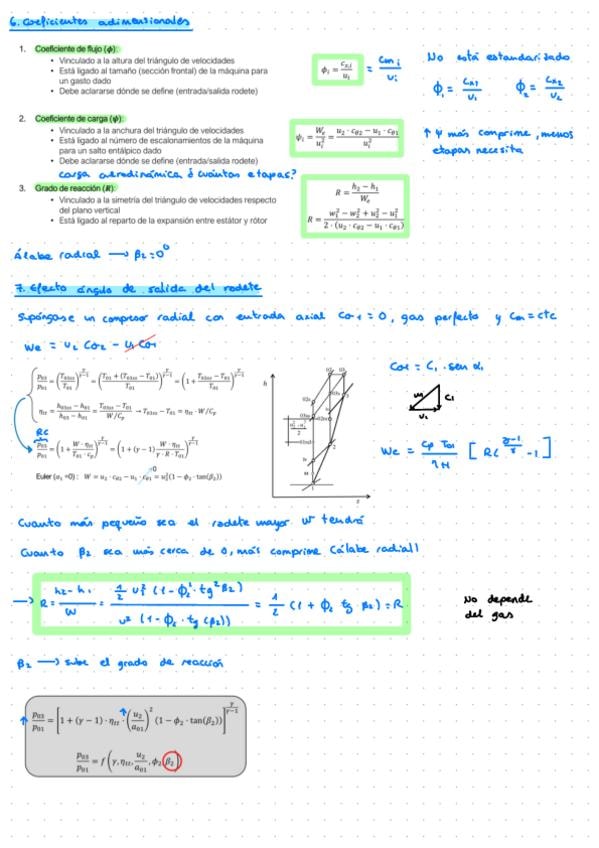 6. Coeficientes adimensionales
1. Coeficiente de flujo (ϕ):
• Vinculado a la altura del triángulo de velocidades
• Está ligado al tamaño (sección frontal) de la máquina para
un gasto dado
• Debe aclararse dónde se define (entrada/salida rodete)
ϕᵢ = cₓ,ᵢ / uᵢ
No está estandarizado
ϕ₁ = cₓ₁ / u₁   ϕ₂ = cₓ₂ / u₂
2. Coeficiente de carga (ψ):
• Vinculado a la anchura del triángulo de velocidades
• Está ligado al número de escalonamientos de la máquina
para un salto entálpico dado
• Debe aclararse dónde se define (entrada/salida rodete)
carga aerodinámica ó cuántas etapas?
ψᵢ = Wₑ / uᵢ² = (u₂ · c_θ2 − u₁ · c_θ1) / uᵢ²
↑ ψ más comprime, menos
etapas necesita
3. Grado de reacción (R):
• Vinculado a la simetría del triángulo de velocidades respecto
del plano vertical
• Está ligado al reparto de la expansión entre estátor y rótor
R = (h₂ − h₁) / Wₑ
R = (w₁² − w₂² + u₂² − u₁²) / (2 · (u₂ · c_θ2 − u₁ · c_θ1))
álabe radial → β₂ = 0°
7. Efecto ángulo de salida del rodete
Supóngase un compresor radial con entrada axial Cθ1 = 0, gas perfecto y Cm = cte
We = u₂ Cθ2 − u₁ Cθ1
p₀₃/p₀₁ = (T₀₃ss/T₀₁)^(γ/(γ−1)) = ((T₀₁ + (T₀₃ss − T₀₁))/T₀₁)^(γ/(γ−1)) = (1 + (T₀₃ss − T₀₁)/T₀₁)^(γ/(γ−1))
η_tt = (h₀₃ss − h₀₁)/(h₀₃ − h₀₁) = (T₀₃ss − T₀₁)/(W/C_p) → T₀₃ss − T₀₁ = η_tt · W/C_p
RC
p₀₃/p₀₁ = (1 + (W · η_tt)/(T₀₁ · c_p))^(γ/(γ−1)) = (1 + (γ − 1) (W · η_tt)/(γ · R · T₀₁))^(γ/(γ−1))
Euler (α₁ =0) : W = u₂ · c_θ2 − u₁ · c_θ1 = u₂²(1 − ϕ₂ · tan(β₂))
0
h
s
Cθ1 = C₁ · sen α₁
C₁
u₁
We = (Cp T₀₁ / η_tt) [ RC^((γ−1)/γ) − 1 ]
Cuanto más pequeño sea el rodete mayor W tendrá
Cuanto β₂ sea más cerca de 0, más comprime (álabe radial)
→ R = (h₂ − h₁)/W = (½ u₂² (1 − ϕ₂² · tg² β₂)) / (u² (1 − ϕ₂ · tg (β₂))) = ½ (1 + ϕ₂ tg β₂) = R
No depende
del gas
β₂ → sube el grado de reacción
↑ p₀₃/p₀₁ = [1 + (γ − 1) · η_tt · (u₂/a₀₁)² (1 − ϕ₂ · tan(β₂))]^(γ/(γ−1))
p₀₃/p₀₁ = f(γ, η_tt, u₂/a₀₁, ϕ₂, β₂)